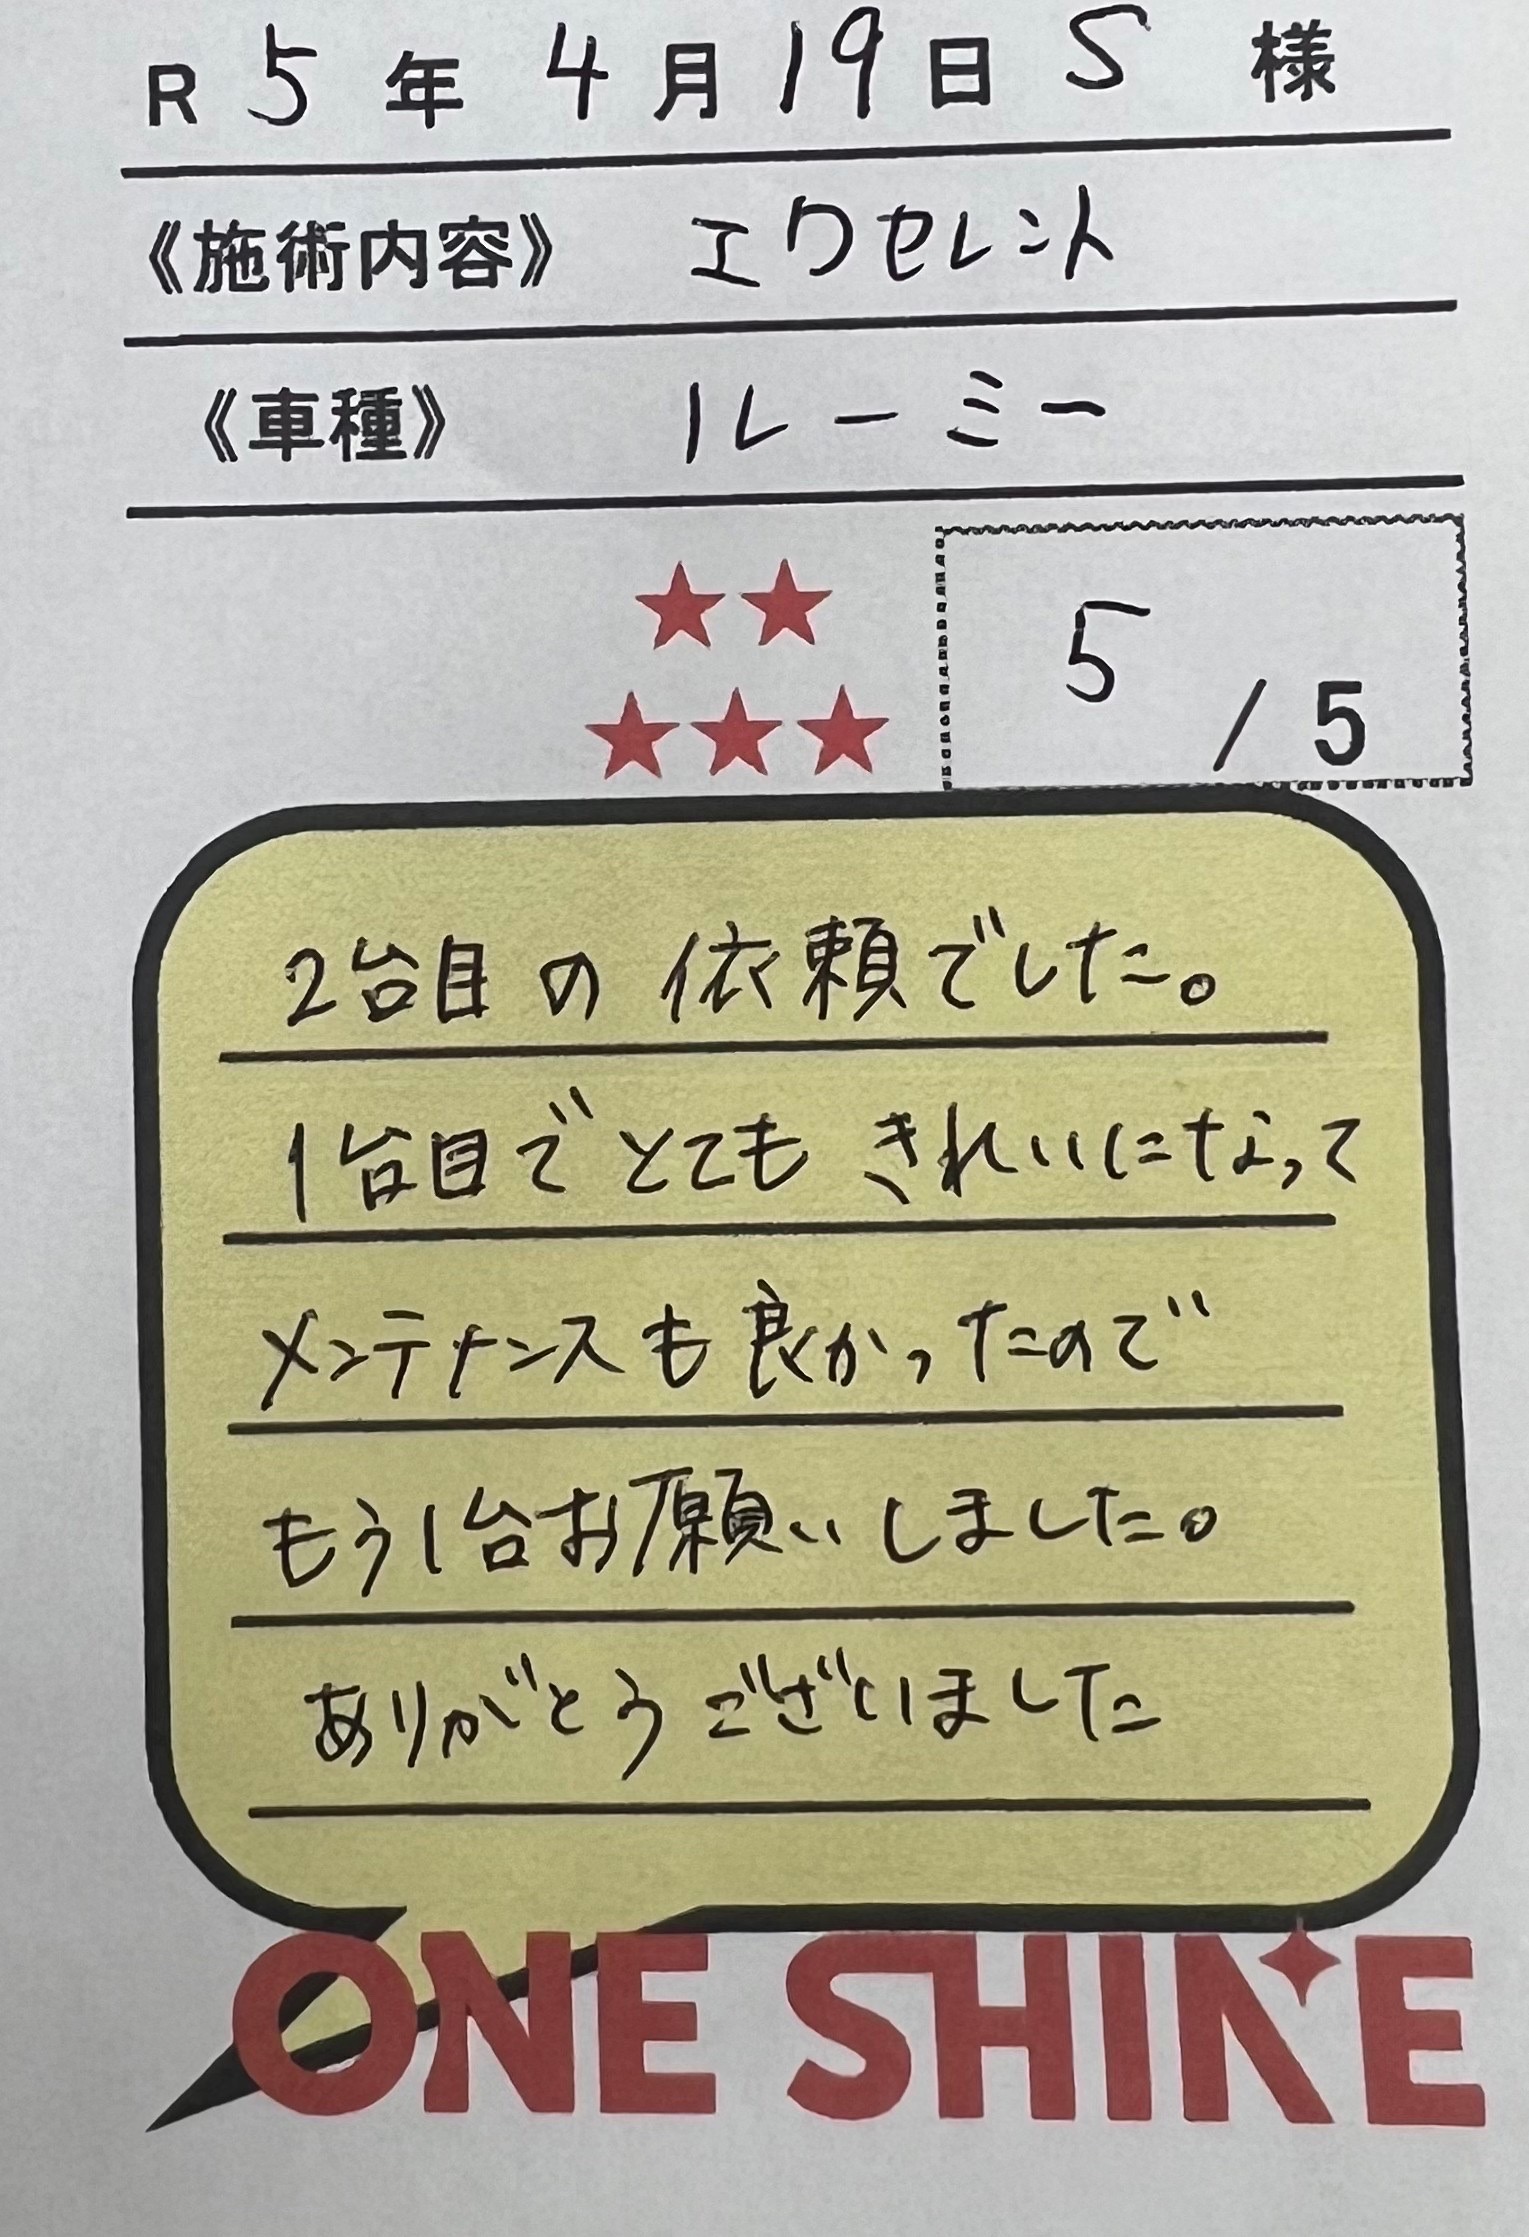 R 5年 4月 19日 S 様
《施術内容》 エクセレント
《車種》 ルーミー
5 / 5
2台目の依頼でした。
1台目でとてもきれいになって
メンテナンスも良かったので
もう1台お願いしました。
ありがとうございました
ONE SHINE